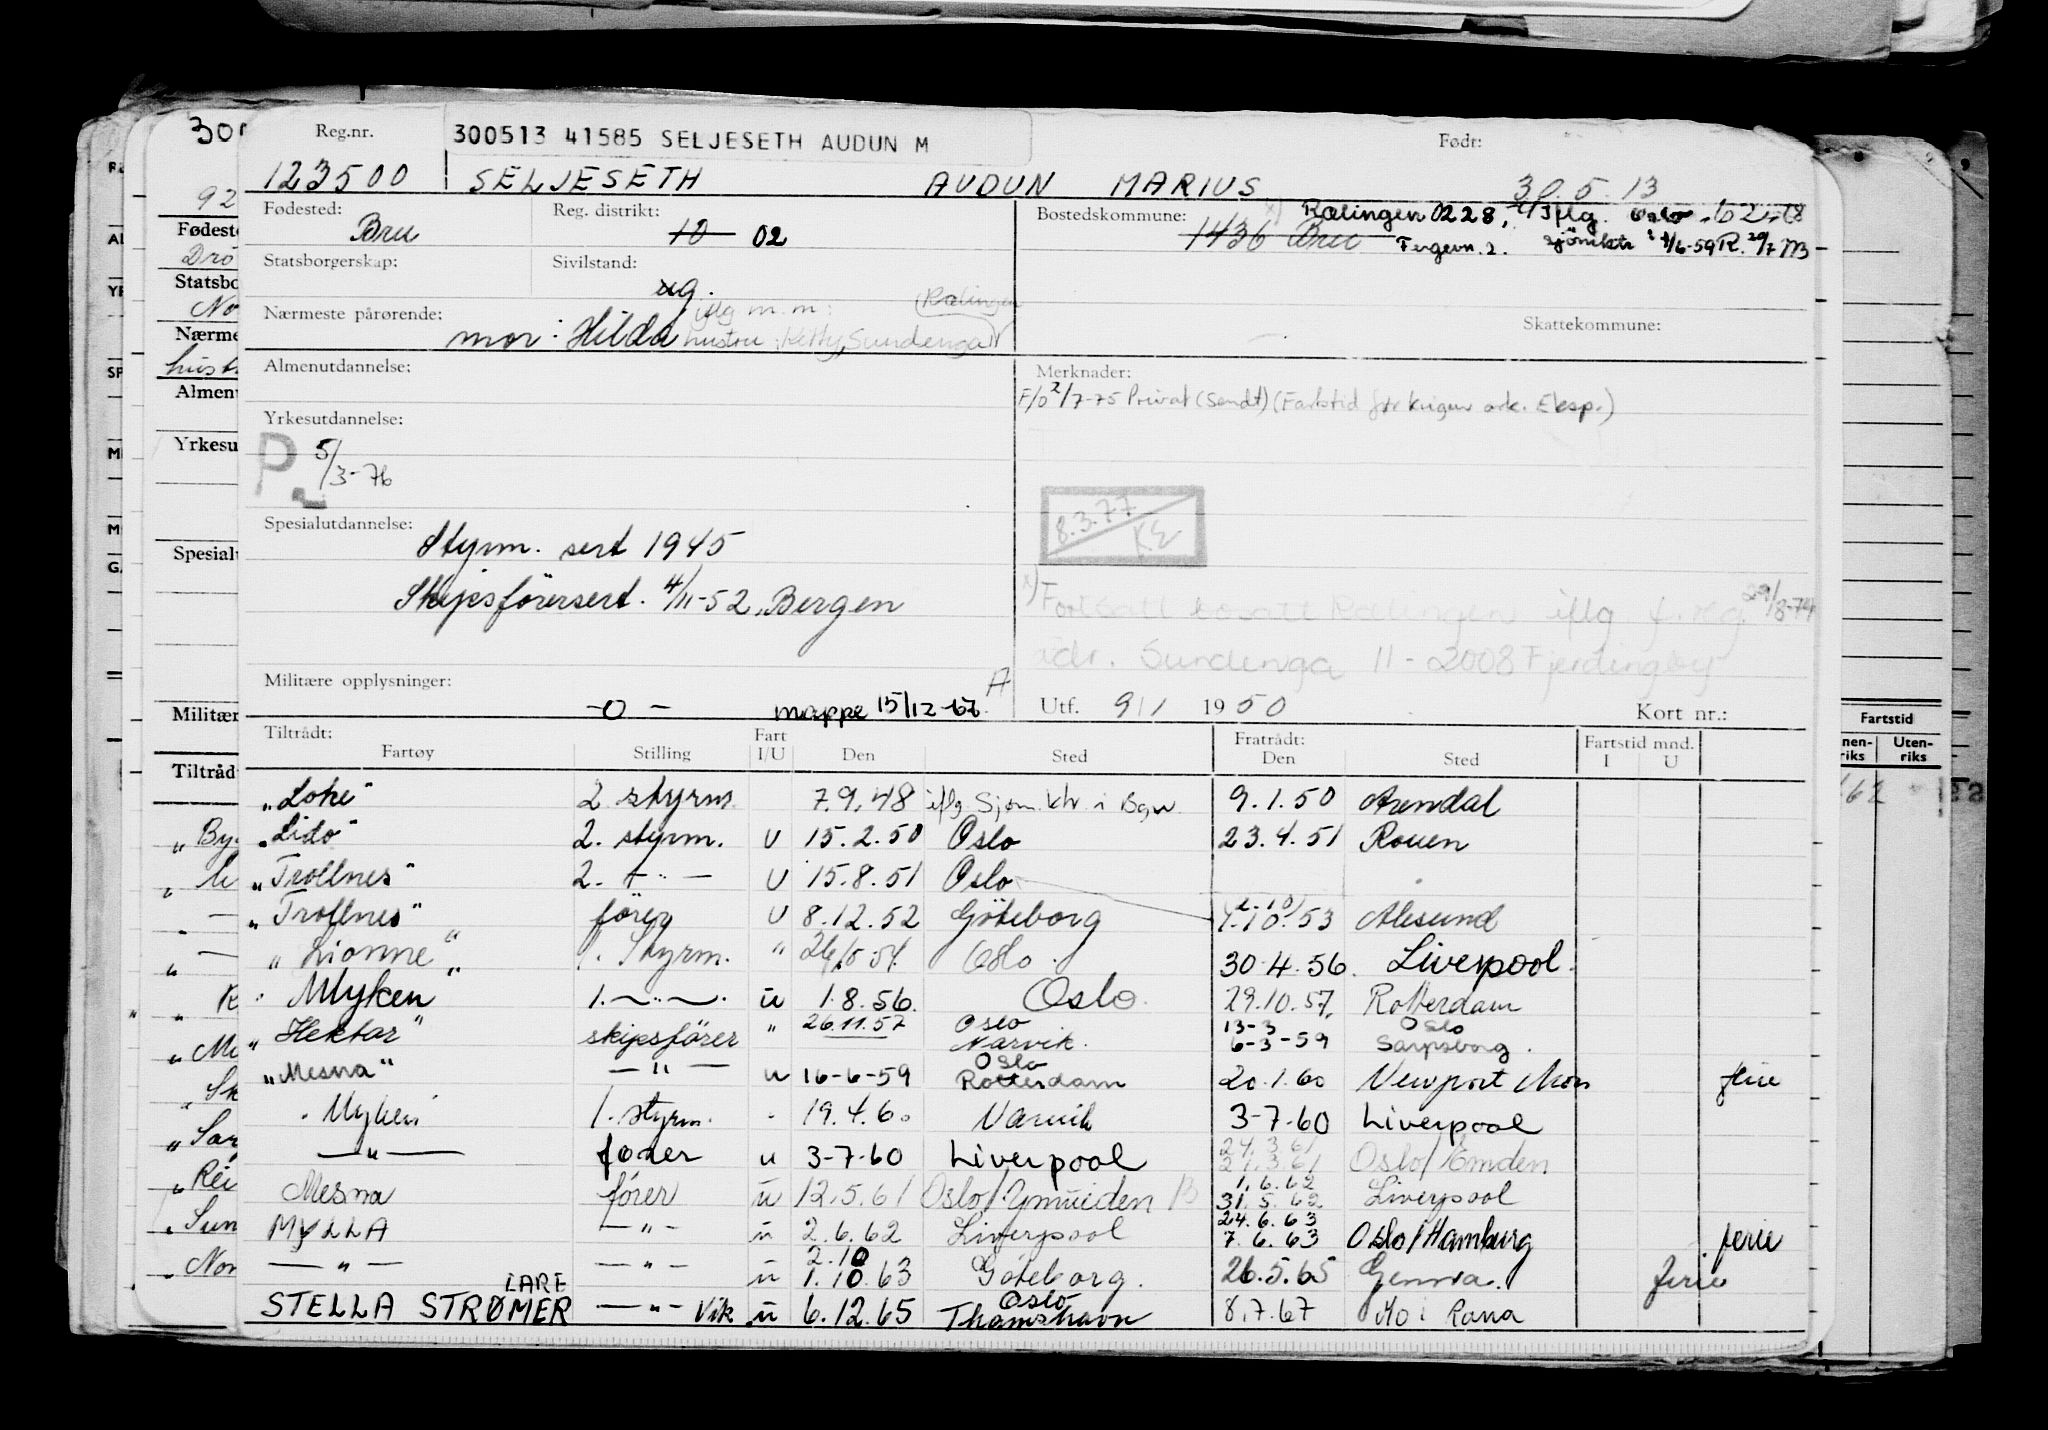 Reg.nr.
300513 41585 SELJESETH AUDUN M
Født:
123500 SELJESETH AUDUN MARIUS 30.5.13
Fødested: Bru
Reg. distrikt: 10 02
Bostedskommune: 1436 Bru
Rælingen 0228, iflg. Oslo
Fergevn. 2. sjömktr
Statsborgerskap:
Sivilstand: ug.
Nærmeste pårørende: mor: Hilda
iflg m.m: (Rælingen
hustru: Ketty, Sundenga
Skattekommune:
Almenutdannelse:
Merknader:
F/o 2/7-75 Privat (Sendt) (Fartstid før krigen ark. Eksp.)
Yrkesutdannelse:
P 5/3-76
8.3.77
KE
Spesialutdannelse: Styrm. sert 1945
Skipsförersert. 4/11-52, Bergen
x) Fortsatt bosatt Rælingen iflg f.reg. 29/8-74
adr. Sundenga 11 - 2008 Fjerdingby
Militære opplysninger: -0- mappe 15/12-67 A
Utf. 9/1 1950
Kort nr.:
Tiltrådt:
Fartøy Stilling Fart I/U Den Sted
Fratrådt: Den Sted
Fartstid mnd. I U
"Loke" 2 styrm. 7.9.48 iflg Sjøm.ktr. i Bgn. 9.1.50 Arendal
"Lido" 2. styrm. U 15.2.50 Oslo 23.4.51 Rouen
"Trollnes" 2. -"- U 15.8.51 Oslo
"Trollnes" förer U 8.12.52 Göteborg 1.10.53 Ålesund
"Lionne" 1. Styrm. " Oslo. 30.4.56. Liverpool.
"Myken" 1. -"-. u 1.8.56. Oslo. 29.10.57. Rotterdam
"Hektor" skipsförer " 26.11.57 Oslo Narvik. 13-3 6-3-59 Oslo Sarpsborg.
"Mesna" -"- u 16-6-59 Oslo Rotterdam 20.1.60 Newport Mon ferie
Myken 1. styrm. 19.4.60 Narvik 3-7-60 Liverpool
-"- förer u 3-7-60 Liverpool 24.3.61 21.3.61 Oslo/Emden
Mesna förer u 12.5.61 Oslo/Ymuiden 1.6.62 31.5.62 Liverpool
MYLLA -"- u 2.6.62 Liverpool 24.6.63 7.6.63 Oslo/Hamburg ferie
-"- -"- u 2.10 1.10.63 Göteborg. 26.5.65 Genova. ferie
STELLA STRØMER LARE -"- Vik u 6.12.65 Oslo Thamshavn 8.7.67 Mo i Rana
Fartstid
Uten-riks